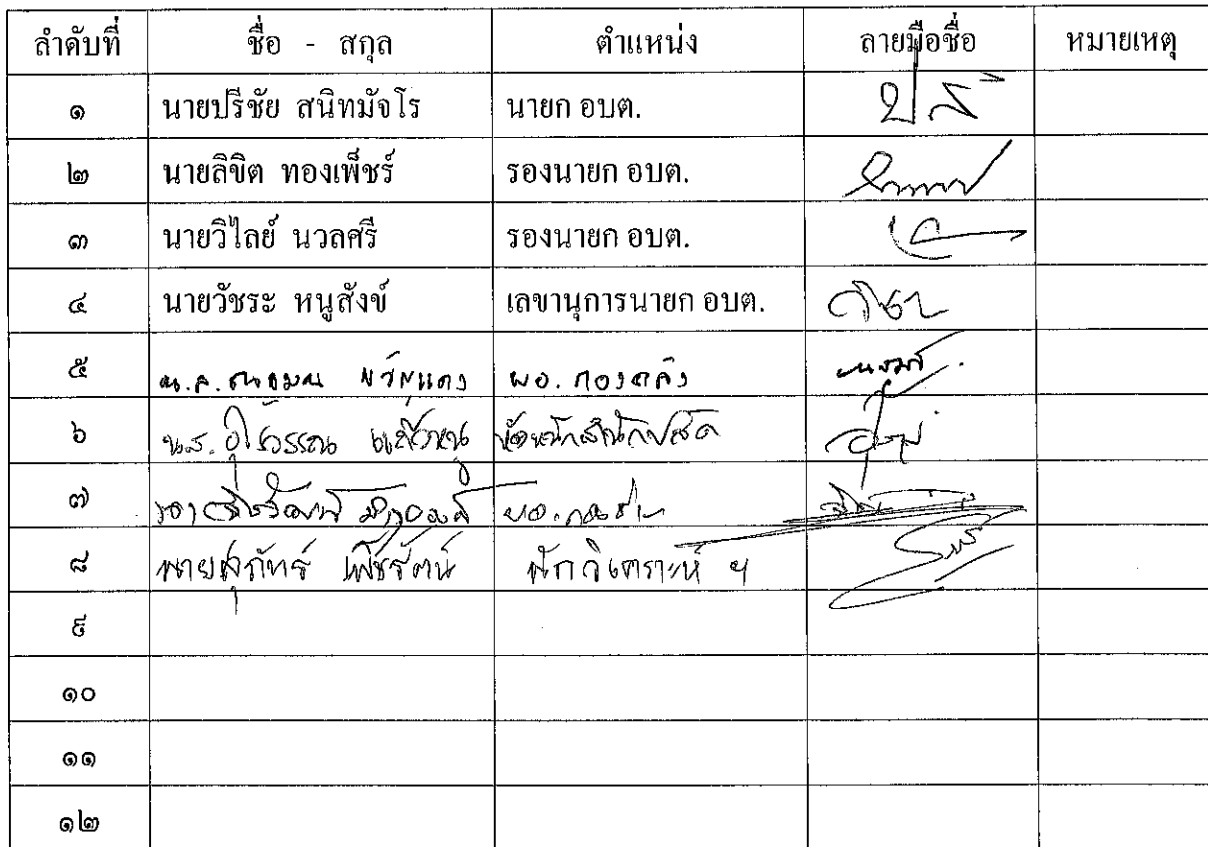 ลำดับที่ ชื่อ - สกุล ตำแหน่ง ลายมือชื่อ หมายเหตุ
๑ นายปรีชัย สนิทมัจโร นายก อบต.
๒ นายลิขิต ทองเพ็ชร์ รองนายก อบต.
๓ นายวิไลย์ นวลศรี รองนายก อบต.
๔ นายวัชระ หนูสังข์ เลขานุการนายก อบต.
๕ น.ส. ผอ. กองคลัง
๖ น.ส. อุไรวรรณ แก้วหนู หัวหน้าสำนักปลัด
๗ ผอ.
๘ นายสุภัทร์ เพ็ชรรัตน์ นักวิเคราะห์ ฯ
๙
๑๐
๑๑
๑๒